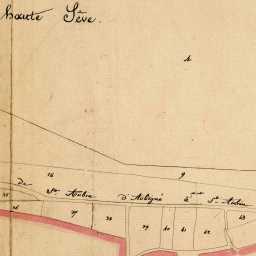 haute Sève.
4
16
9
de St. Aubin d'Aubigné à St. Aubin
26
27
28
29
40
41
42
43